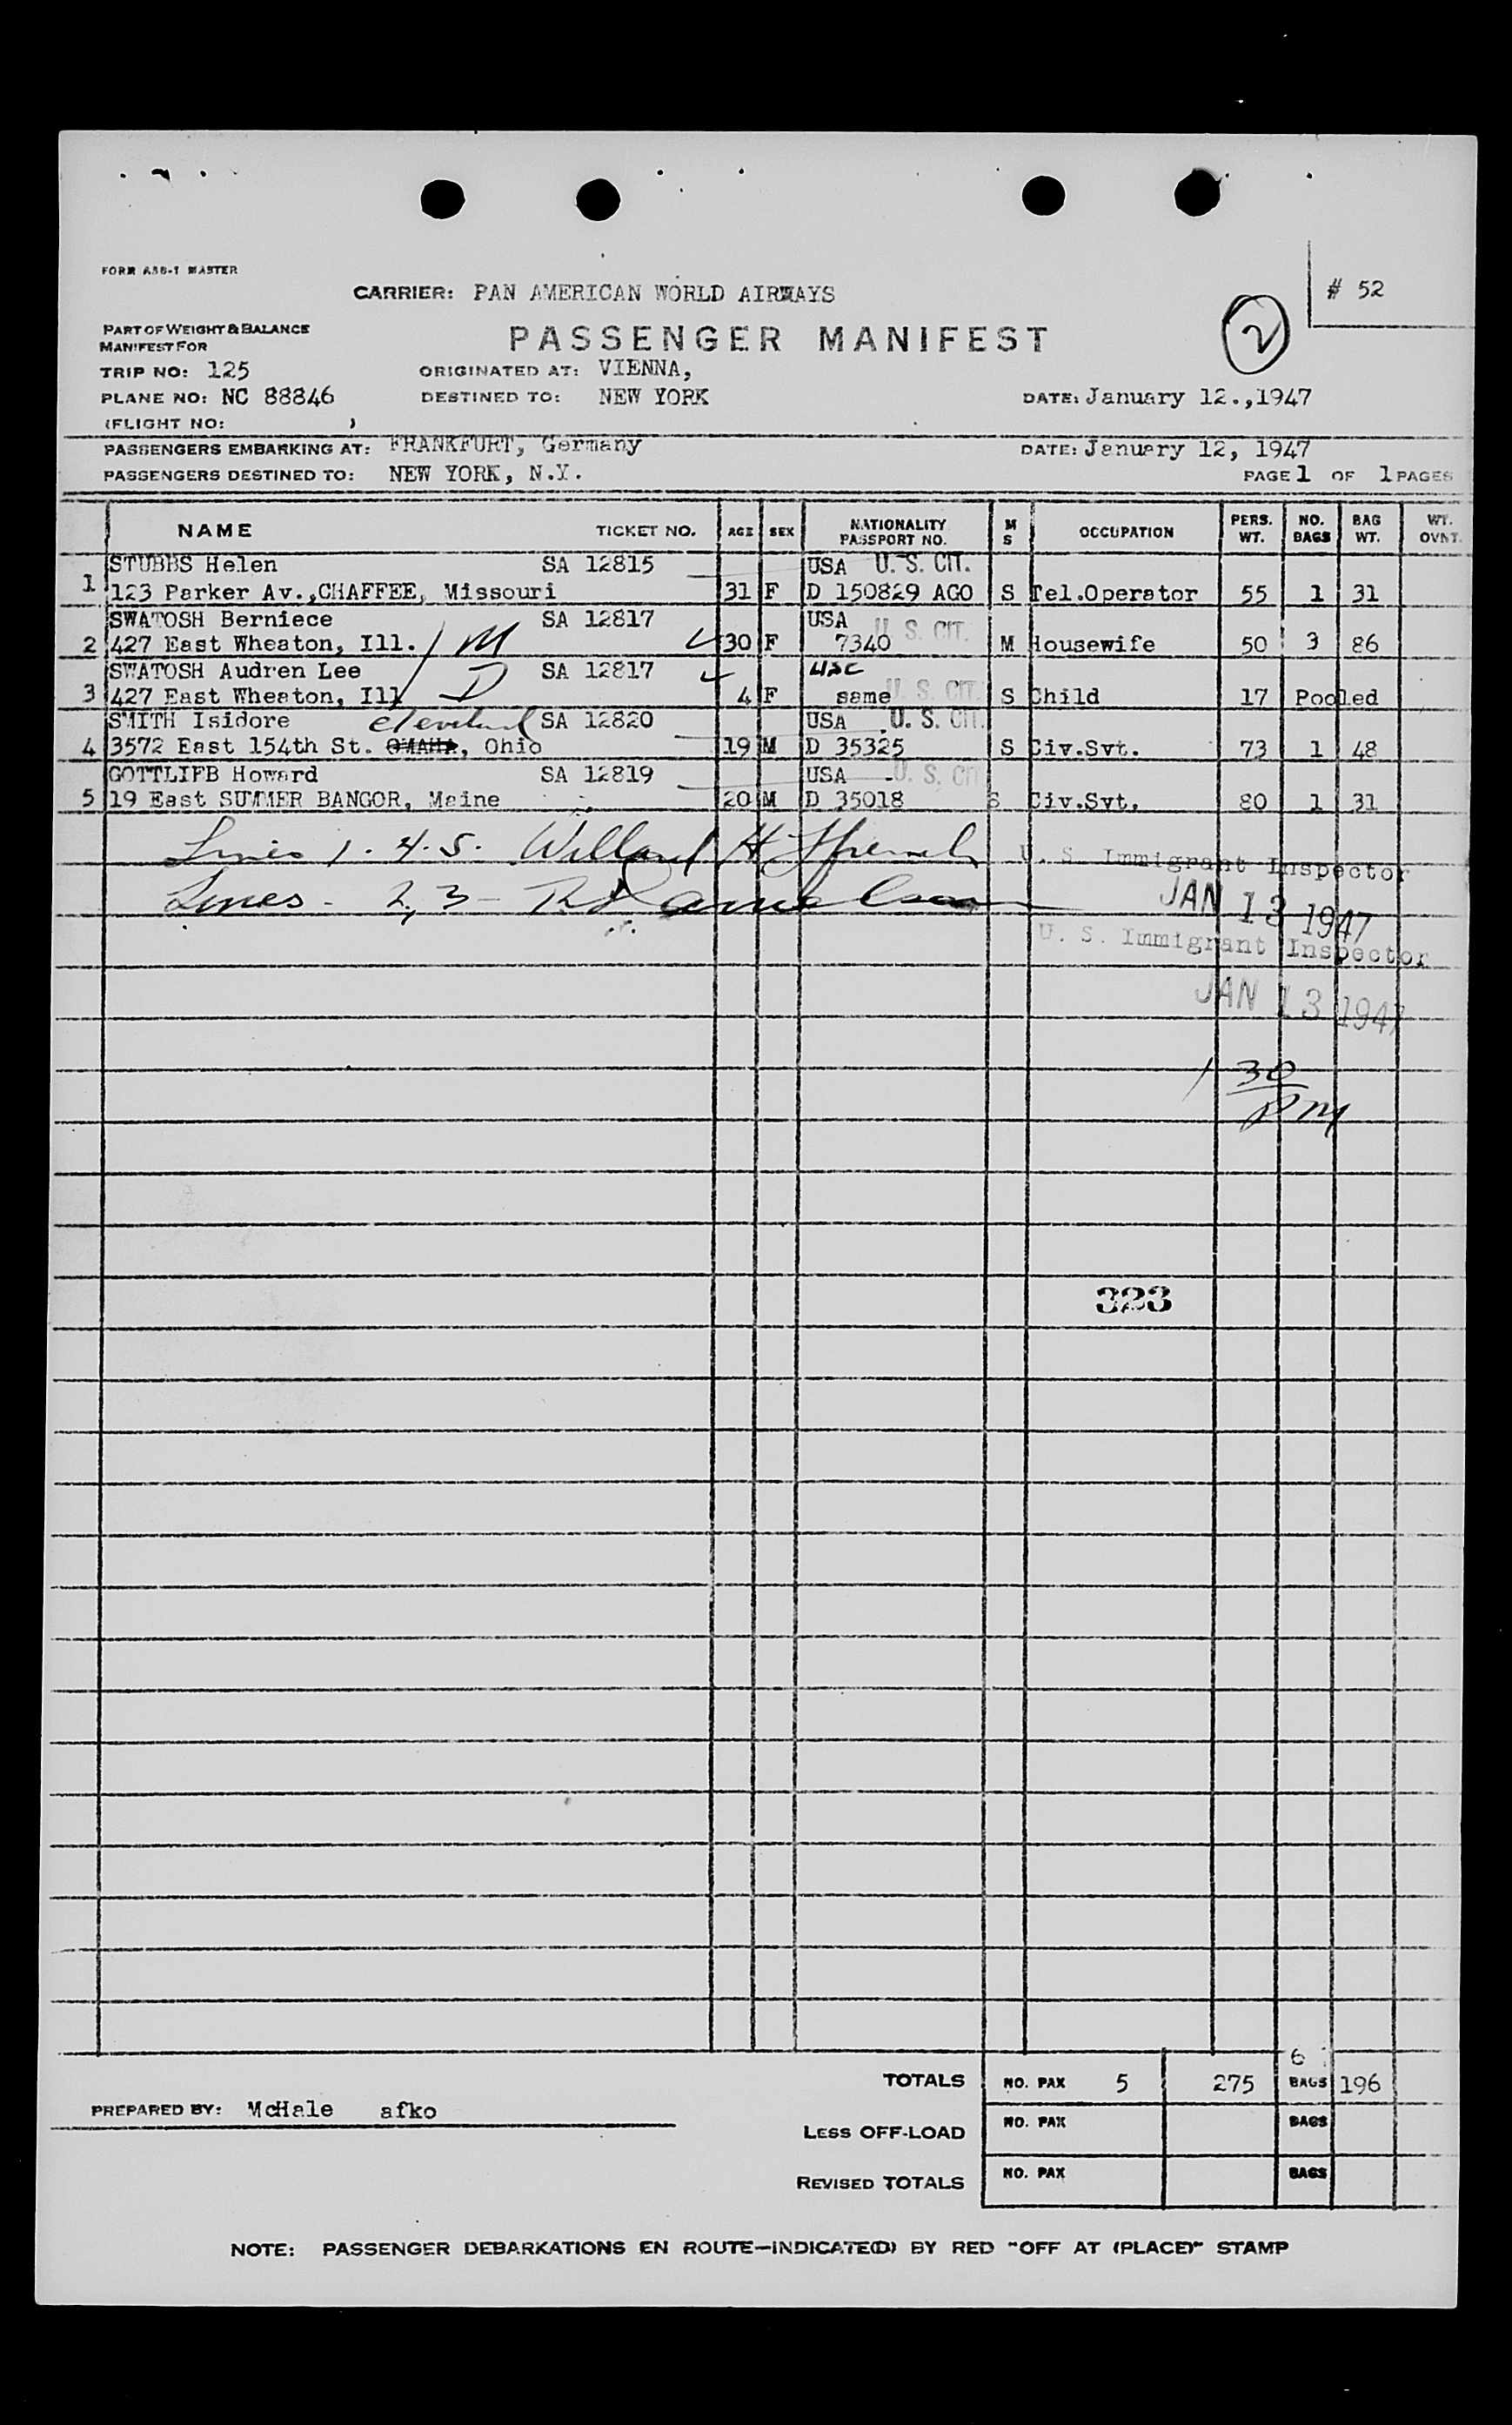 FORM ASB-1 MASTER
CARRIER: PAN AMERICAN WORLD AIRWAYS
# 52
PART OF WEIGHT & BALANCE
MANIFEST FOR
PASSENGER MANIFEST
2
TRIP NO: 125 ORIGINATED AT: VIENNA,
PLANE NO: NC 88846 DESTINED TO: NEW YORK DATE: January 12.,1947
(FLIGHT NO: )
PASSENGERS EMBARKING AT: FRANKFURT, Germany DATE: January 12, 1947
PASSENGERS DESTINED TO: NEW YORK, N.Y. PAGE 1 OF 1 PAGES
NAME TICKET NO. AGE SEX NATIONALITY PASSPORT NO. M S OCCUPATION PERS. WT. NO. BAGS BAG WT. WT. OVNT.
STUBBS Helen SA 12815 USA U.S. CIT.
1 123 Parker Av.,CHAFFEE, Missouri 31 F D 150829 AGO S Tel.Operator 55 1 31
SWATOSH Berniece SA 12817 USA U.S. CIT.
2 427 East Wheaton, Ill. / M 30 F 7340 M Housewife 50 3 86
SWATOSH Audren Lee SA 12817 USC
3 427 East Wheaton, Ill / D 4 F same U.S. CIT. S Child 17 Pooled
SMITH Isidore Cleveland SA 12820 USA U.S. CIT.
4 3572 East 154th St. OMAHA, Ohio 19 M D 35325 S Civ.Svt. 73 1 48
GOTTLIEB Howard SA 12819 USA U.S. CIT
5 19 East SUMMER BANGOR, Maine 20 M D 35018 S Civ.Svt. 80 1 31
Lines 1. 4. 5. Willard H U. S. Immigrant Inspector
JAN 13 1947
Lines - 2, 3 -
U. S. Immigrant Inspector
JAN 13 1947
1 30
PM
323
6
TOTALS NO. PAX 5 275 BAGS 196
PREPARED BY: McHale afko
LESS OFF-LOAD NO. PAX BAGS
REVISED TOTALS NO. PAX BAGS
NOTE: PASSENGER DEBARKATIONS EN ROUTE—INDICATE(D) BY RED "OFF AT (PLACE)" STAMP